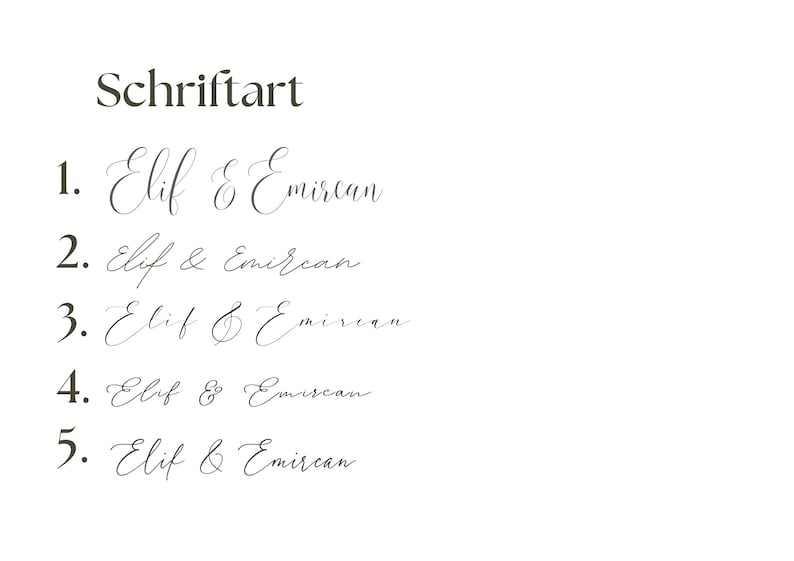 Schriftart
1. Elif & Emircan
2. Elif & Emircan
3. Elif & Emircan
4. Elif & Emircan
5. Elif & Emircan